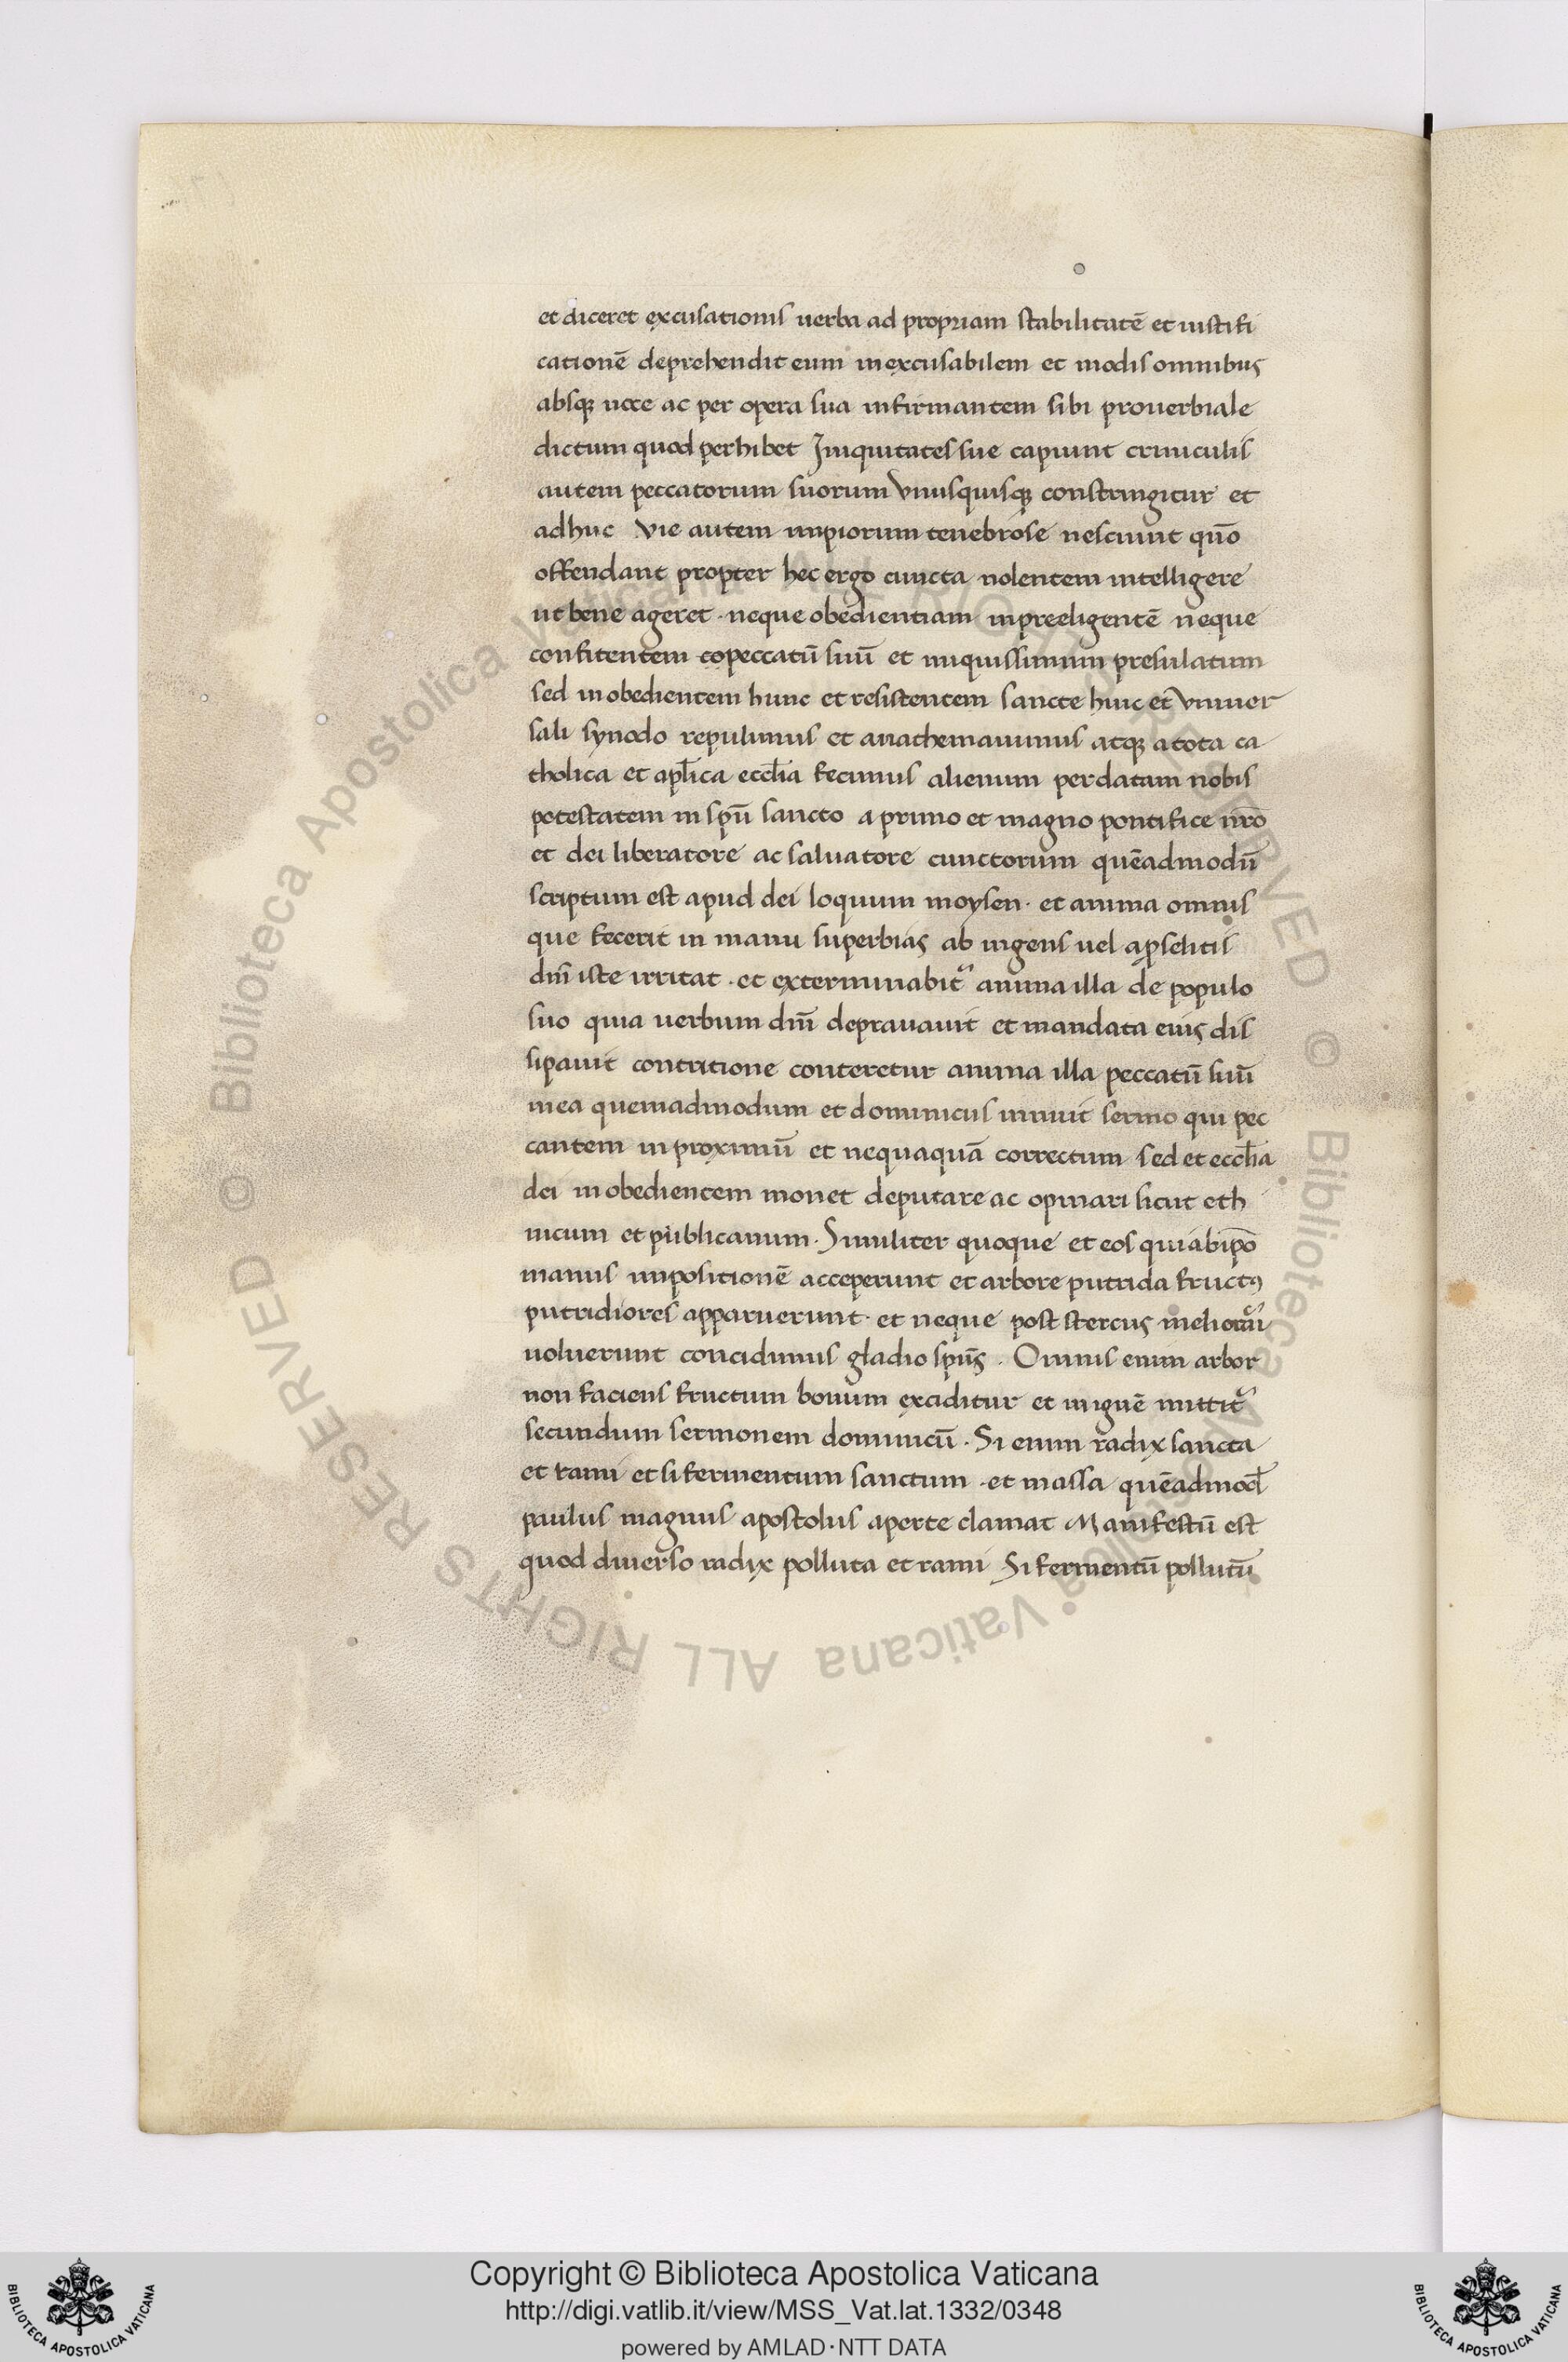 et diceret excusationis uerba ad propriam stabilitatē et iustifi
cationē deprehendit eum inexcusabilem et modis omnibus
absq; uoce ac per opera sua infirmantem sibi prouerbiale
dictum quod perhibet Iniquitates sue capiunt criniculis
autem peccatorum suorum vnusquisq; constringitur et
adhuc vie autem impiorum tenebrose nesciunt quō
offendant propter hec ergo cuncta nolentem intelligere
ut bene ageret · neque obedientiam inpreeligentē neque
confitentem copeccatū suū et iniquissimum presulatum
sed inobedientem hunc et resistentem sancte huic et vniuer
sali synodo repulimus et anathemauimus atq; a tota ca
tholica et apl̄ica eccl̄ia fecimus alienum per datam nobis
potestatem in spū sancto a primo et magno pontifice nr̄o
et dei liberatore ac saluatore cunctorum quēadmodū
scriptum est apud dei loquum moysen · et anima omnis
que fecerit in manu superbias ab ingens uel a proselitis
dm̄ iste irritat · et exterminabit᷑ anima illa de populo
suo quia uerbum dm̄ deprauauit et mandata eius dis
sipauit contritione conteretur anima illa peccatū suū
mea quemadmodum et dominicus innuit sermo qui pec
cantem in proximū et nequaquā correctum sed et eccl̄ia
dei inobedientem monet deputare ac opinari sicut eth
nicum et publicanum · Similiter quoque et eos qui ab ipō
manus impositionē acceperunt et arbore putrida fructꝯ
putridiores apparuerunt · et neque post stercus meliorari
uoluerunt concidimus gladio spūs · Omnis enim arbor
non faciens fructum bonum exciditur et in ignē mittit᷑
secundum sermonem dominicū · Si enim radix sancta
et rami et si fermentum sanctum · et massa quēadmod̄
paulus magnus apostolus aperte clamat Manifestū est
quod diuerso radix polluta et rami Si fermentū pollutū
© Biblioteca Apostolica Vaticana ALL RIGHTS RESERVED © Biblioteca Apostolica Vaticana ALL RIGHTS RESERVED
Copyright © Biblioteca Apostolica Vaticana
http://digi.vatlib.it/view/MSS_Vat.lat.1332/0348
powered by AMLAD·NTT DATA
BIBLIOTECA APOSTOLICA VATICANA
BIBLIOTECA APOSTOLICA VATICANA